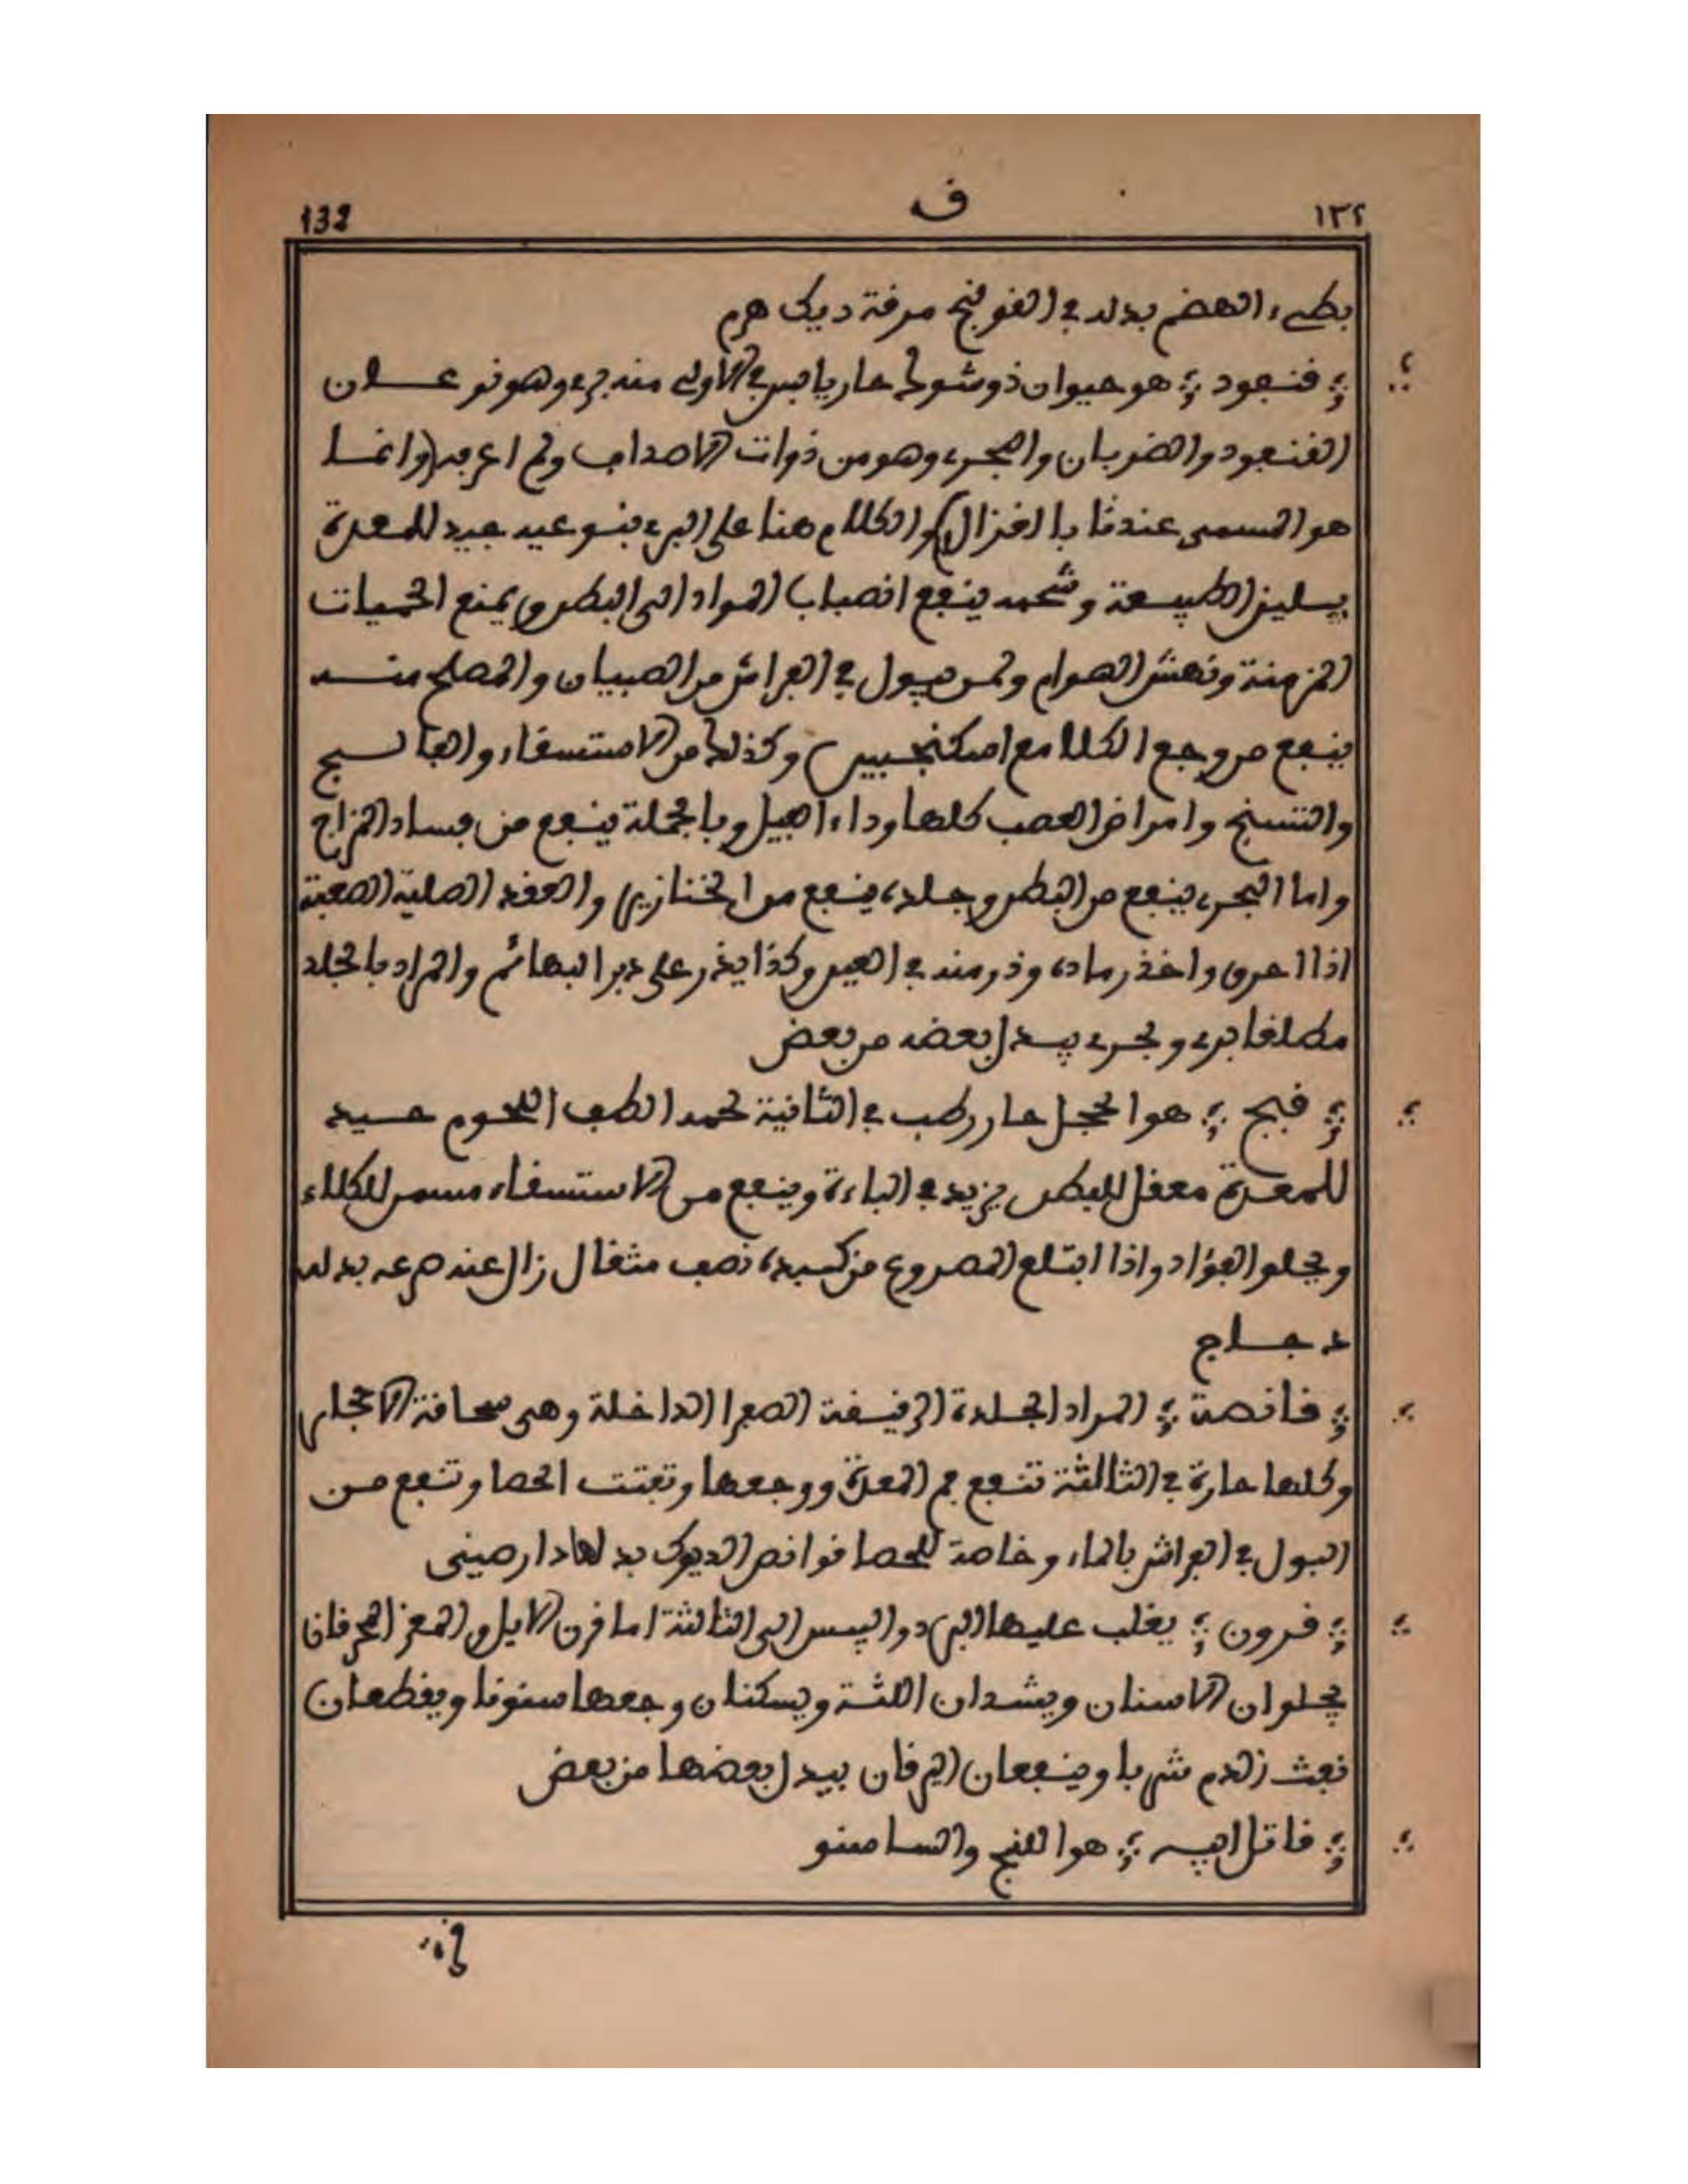 132 ف ١٣٢
بطىء الهضم بدله في القولنج مرقة ديك هرم
قنفود هو حيوان ذو شوك حار يابس في الاولى منه بري وهو نوعان
القنفود والضربان والبحري وهو من ذوات الاصداف ولم اعرفه (وانما
هو المسمى عندنا بالغزال) والكلام هنا على البري بنوعيه جيد للمعدة
يسلين الطبيعة وشحمه ينفع انصباب المواد الى البطن ويمنع الحميات
المزمنة ونهش الهوام ولمن يبول في الفراش من الصبيان والمملح منه
ينفع من وجع الكلا مع اسكنجبين وكذلك من الاستسقاء والفالج
والتشنج وامراض العصب كلها وداء الفيل وبالجملة ينفع من فساد المزاج
واما البحري ينفع من البطن وجلده ينفع من الخنازير والعقد الصلبة الصعبة
اذا احرق واخذ رماده وذر منه في العين وكذا يذر على دبر البهائم والمراد بالجلد
مطلقا بري وبحري يبدل بعضه من بعض
قبج هو الحجل حار رطب في الثانية لحمه الطف اللحوم جيد
للمعدة معقل للبطن يزيد في الباءة وينفع من الاستسقاء مسمن للكلاء
ويجلو الفؤاد واذا ابتلع المصروع من كبده نصف مثقال زال عنه صرعه بدله
دجاج
قانصة المراد الجلدة الرقيقة الصفرا الداخلة وهى سحافة الاجلى
وكلها حارة في الثالثة تنفع فم المعدة ووجعها وتفتت الحصا وتنفع من
البول في الفراش بالماء وخاصة للحصا قوانص الديوك بدلها دارصينى
قرون يغلب عليها البرد واليبس الى الثالثة اما قرن الايل والمعز المحرقان
يجلوان الاسنان ويشدان اللثة ويسكنان وجعها سنونا ويقطعان
نفث الدم شربا وينفعان اليرقان يبدل بعضها من بعض
قاتل ابيه هو اللنج والساسنو